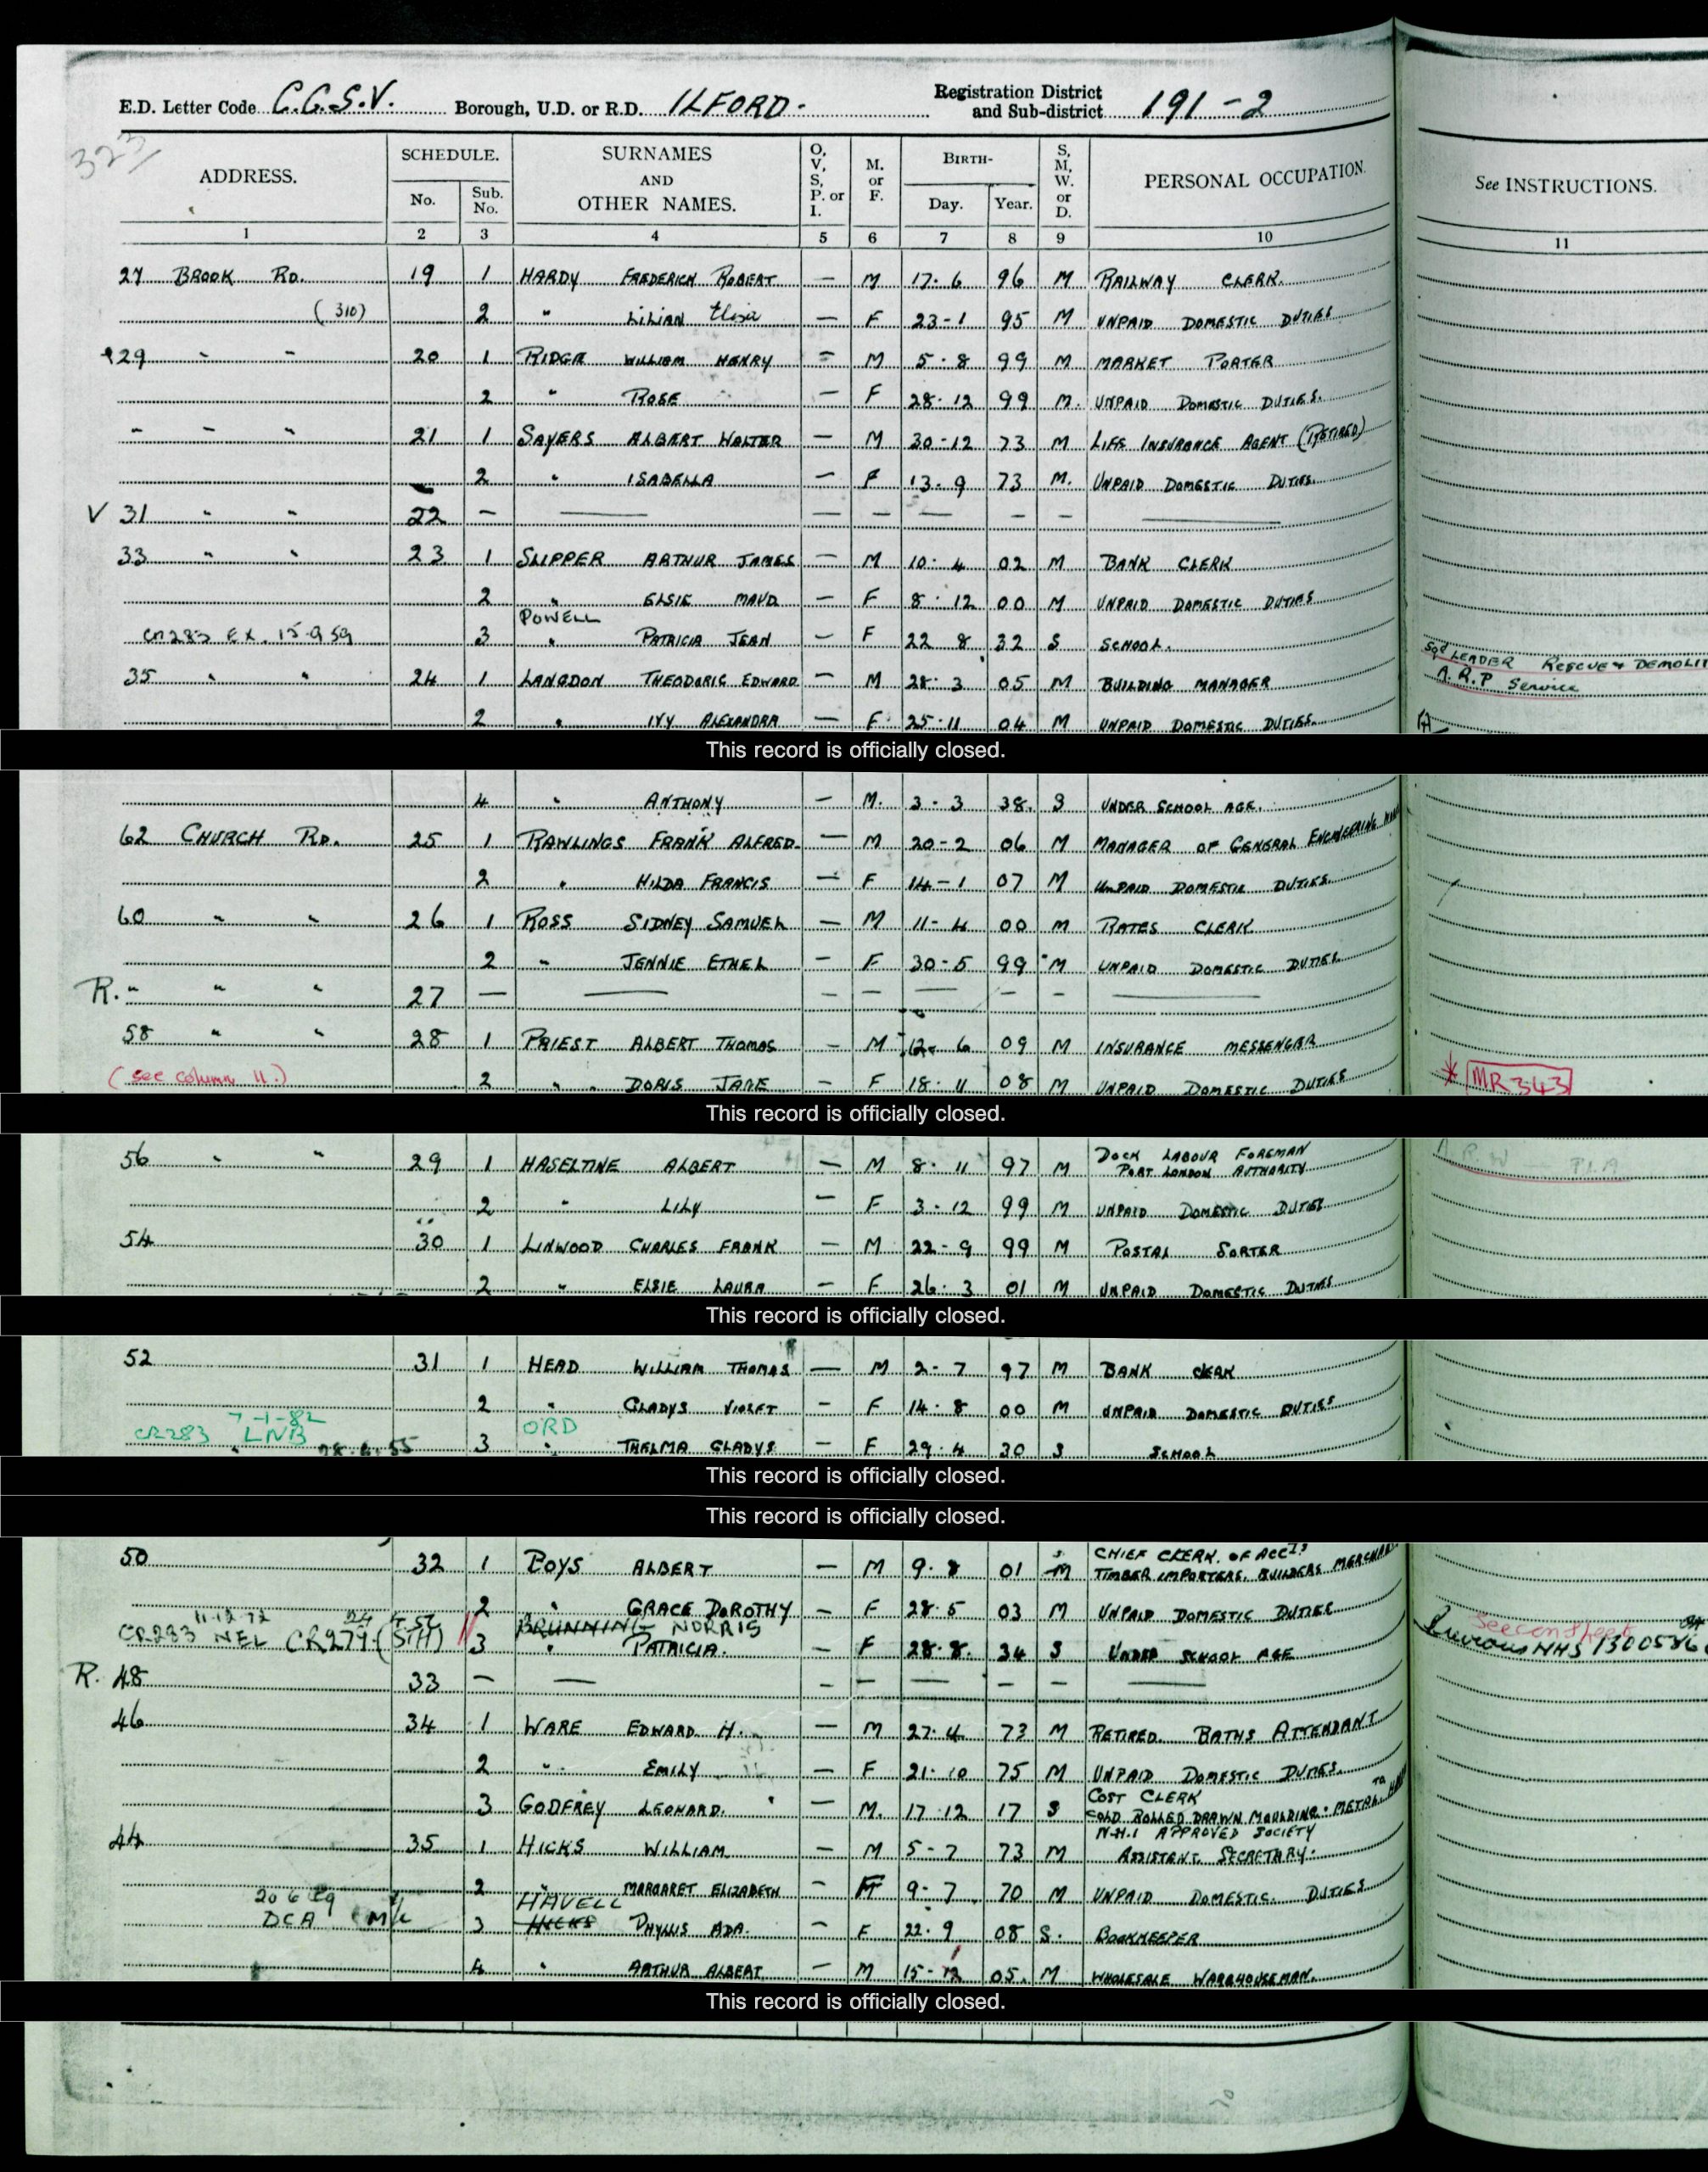 E.D. Letter Code C.G.S.V. Borough, U.D. or R.D. ILFORD. Registration District and Sub-district 191-2
323
ADDRESS. SCHEDULE. No. Sub. No. SURNAMES AND OTHER NAMES. O, V, S, P. or I. M. or F. BIRTH- Day. Year. S, M, W. or D. PERSONAL OCCUPATION. See INSTRUCTIONS.
1 2 3 4 5 6 7 8 9 10 11
27 BROOK RD. 19 1 HARDY FREDERICK ROBERT — M 17·6 96 M RAILWAY CLERK.
(310) 2 " LILIAN Eliza — F 23-1 95 M UNPAID DOMESTIC DUTIES
29 " " 20 1 RIDGE WILLIAM HENRY — M 5·8 99 M MARKET PORTER
2 " ROSE — F 28·12 99 M. UNPAID DOMESTIC DUTIES.
" " " 21 1 SAYERS ALBERT WALTER — M 30-12 73 M LIFE INSURANCE AGENT (RETIRED)
2 " ISABELLA — F 13·9 73 M. UNPAID DOMESTIC DUTIES.
V 31 " " 22 — — — — — — — —
33 " " 23 1 SLIPPER ARTHUR JAMES — M 10·4 02 M BANK CLERK
2 " ELSIE MAUD — F 8·12 00 M UNPAID DOMESTIC DUTIES
POWELL
CR283 EX. 15-9 59 3 " PATRICIA JEAN — F 22 8 32 S SCHOOL.
35 " " 24 1 LANGDON THEODORIC EDWARD — M 28·3 05 M BUILDING MANAGER Sqd LEADER RESCUE & DEMOLIT
A.R.P Service
2 " IVY ALEXANDRA — F 25·11 04 M UNPAID DOMESTIC DUTIES.
This record is officially closed.
4 " ANTHONY — M. 3·3 38. S UNDER SCHOOL AGE.
62 CHURCH RD. 25 1 RAWLINGS FRANK ALFRED — M 20-2 06 M MANAGER OF GENERAL ENGINEERING
2 " HILDA FRANCIS — F 14-1 07 M UNPAID DOMESTIC DUTIES.
60 " " 26 1 ROSS SIDNEY SAMUEL — M 11-4 00 M RATES CLERK
2 " JENNIE ETHEL — F 30-5 99 M UNPAID DOMESTIC DUTIES
R. " " " 27 — — — — — — — —
58 " " 28 1 PRIEST ALBERT THOMAS — M 12·6 09 M INSURANCE MESSENGER
(see column 11.) 2 " " DORIS JANE — F 18·11 08 M UNPAID DOMESTIC DUTIES * MR343
This record is officially closed.
56 " " 29 1 HASELTINE ALBERT — M 8·11 97 M DOCK LABOUR FOREMAN
PORT LONDON AUTHORITY
2 " LILY — F 3·12 99 M UNPAID DOMESTIC DUTIES
54 30 1 LINWOOD CHARLES FRANK — M 22-9 99 M POSTAL SORTER
2 " ELSIE LAURA — F 26·3 01 M UNPAID DOMESTIC DUTIES
This record is officially closed.
52 31 1 HEAD WILLIAM THOMAS — M 2-7 97 M BANK CLERK
2 " GLADYS VIOLET — F 14·8 00 M UNPAID DOMESTIC DUTIES
7-1-82 ORD
CR283 LNB 28.6.55 3 " THELMA GLADYS — F 29·4 30 S SCHOOL
This record is officially closed.
This record is officially closed.
50 32 1 BOYS ALBERT — M 9·8 01 M CHIEF CLERK. OF ACCTS
TIMBER IMPORTERS. BUILDERS MERCHANT
2 " GRACE DOROTHY — F 28·5 03 M UNPAID DOMESTIC DUTIES
11-12-72 BRUNNING NORRIS
CR283 NEL CR279 (STH) 3 " PATRICIA. — F 28·8. 34 S UNDER SCHOOL AGE Previous NHS
R. 48 33 — — — — — — — —
46 34 1 WARE EDWARD H. — M 27·4 73 M RETIRED. BATHS ATTENDANT
2 " EMILY — F 21·10 75 M UNPAID DOMESTIC DUTIES.
3 GODFREY LEONARD. — M. 17·12 17 S COST CLERK
COLD ROLLED DRAWN MOULDING METAL
44 35 1 HICKS WILLIAM — M 5-7 73 M N.H.I APPROVED SOCIETY
ASSISTANT SECRETARY.
2 " MARGARET ELIZABETH — F 9·7 70 M UNPAID DOMESTIC. DUTIES
20 6 HAVELL
DCA 3 HICKS PHYLLIS ADA. — F 22·9 08 S. BOOKKEEPER
4 " ARTHUR ALBERT — M 15-12 05. M WHOLESALE WAREHOUSEMAN.
This record is officially closed.